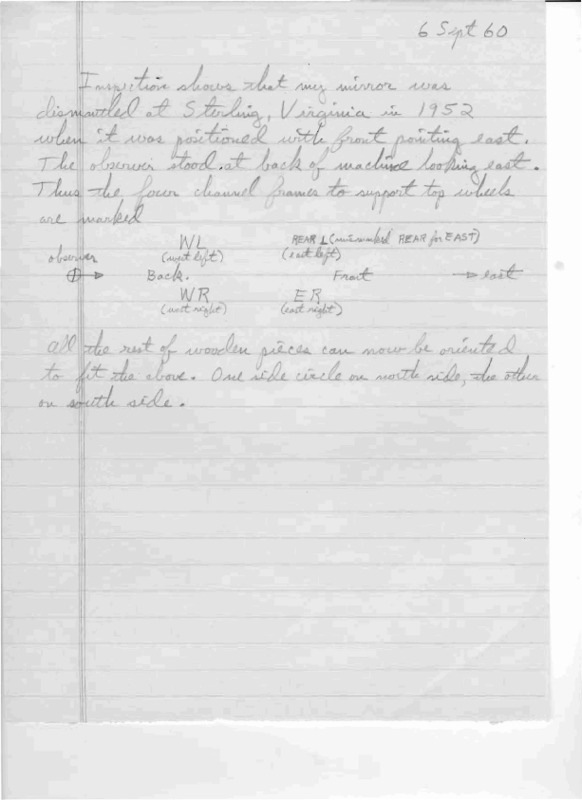 6 Sept 60
Inspection shows that my mirror was
dismantled at Sterling, Virginia in 1952
when it was positioned with front pointing east.
The observer stood at back of machine looking east.
Thus the four channel frames to support top wheels
are marked
WL REAR L (mismarked REAR for EAST)
observer (west left) (east left)
Back. Front → east
WR ER
(west right) (east right)
All the rest of wooden pieces can now be oriented
to fit the above. One side circle on north side, the other
on south side.